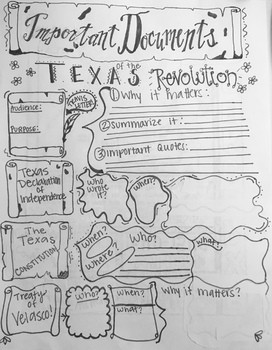 Important Documents
of the
TEXAS Revolution
Audience:
Purpose:
TRAVIS LETTER!
①Why it matters:
②summarize it:
③important quotes:
Texas
Declaration
of
Independence
Who wrote it?
when?
The
Texas
CONSTITUTION
when?
where?
Who?
what?
Treaty
of
Velasco!
who?
when?
what?
Why it matters?